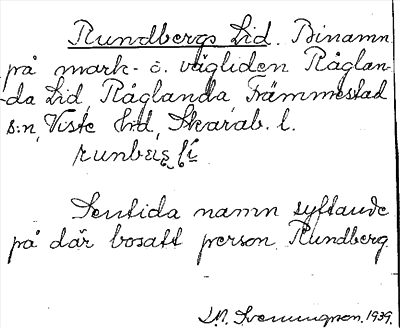 Rundbergs Lid. Binamn
på mark- o. vägliden Råglan-
da Lid, Råglanda, Främmestad
s:n, Viste hd, Skarab. l.
Sentida namn syftande
på där bosatt person Rundberg.
1939.